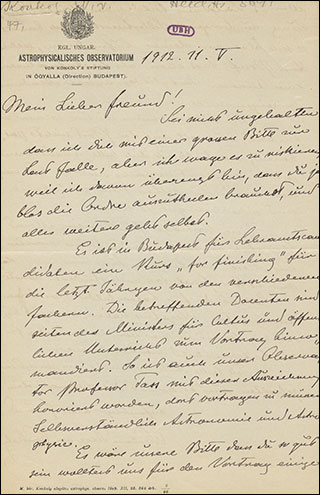 UBH
KGL. UNGAR.
ASTROPHYSICALISCHES OBSERVATORIUM
VON KONKOLY'S STIFTUNG
IN ÓGYALLA (Direction) BUDAPEST).
1912. 11. V.
Mein Lieber Freund!
Sei nicht ungehalten
dass ich dir mit einer grossen Bitte zur
Last falle, aber ich wage es zu riskieren
weil ich davon überzeugt bin, dass du ja
blos die Ordre auszutheilen brauchst und
alles weitere geht selbst.
Es ist in Budapest für Lehramtscan
didaten ein Kurs „for finishing" für
die letzt Jährigen von den verschiedenen
Fächern. Die betreffenden Docenten sind
seitens des Ministers für Cultus und öffent
lichen Unterricht zum Vortrag
mandiert. So ist auch unser Observa
tor Professor mit dieser Auszeichnung
worden, dort vortragen zu müssen
Selbstverständlich Astronomie und Astro
Es wäre unsere Bitte dass du so gut
sein wolltest uns für den Vortrag einige